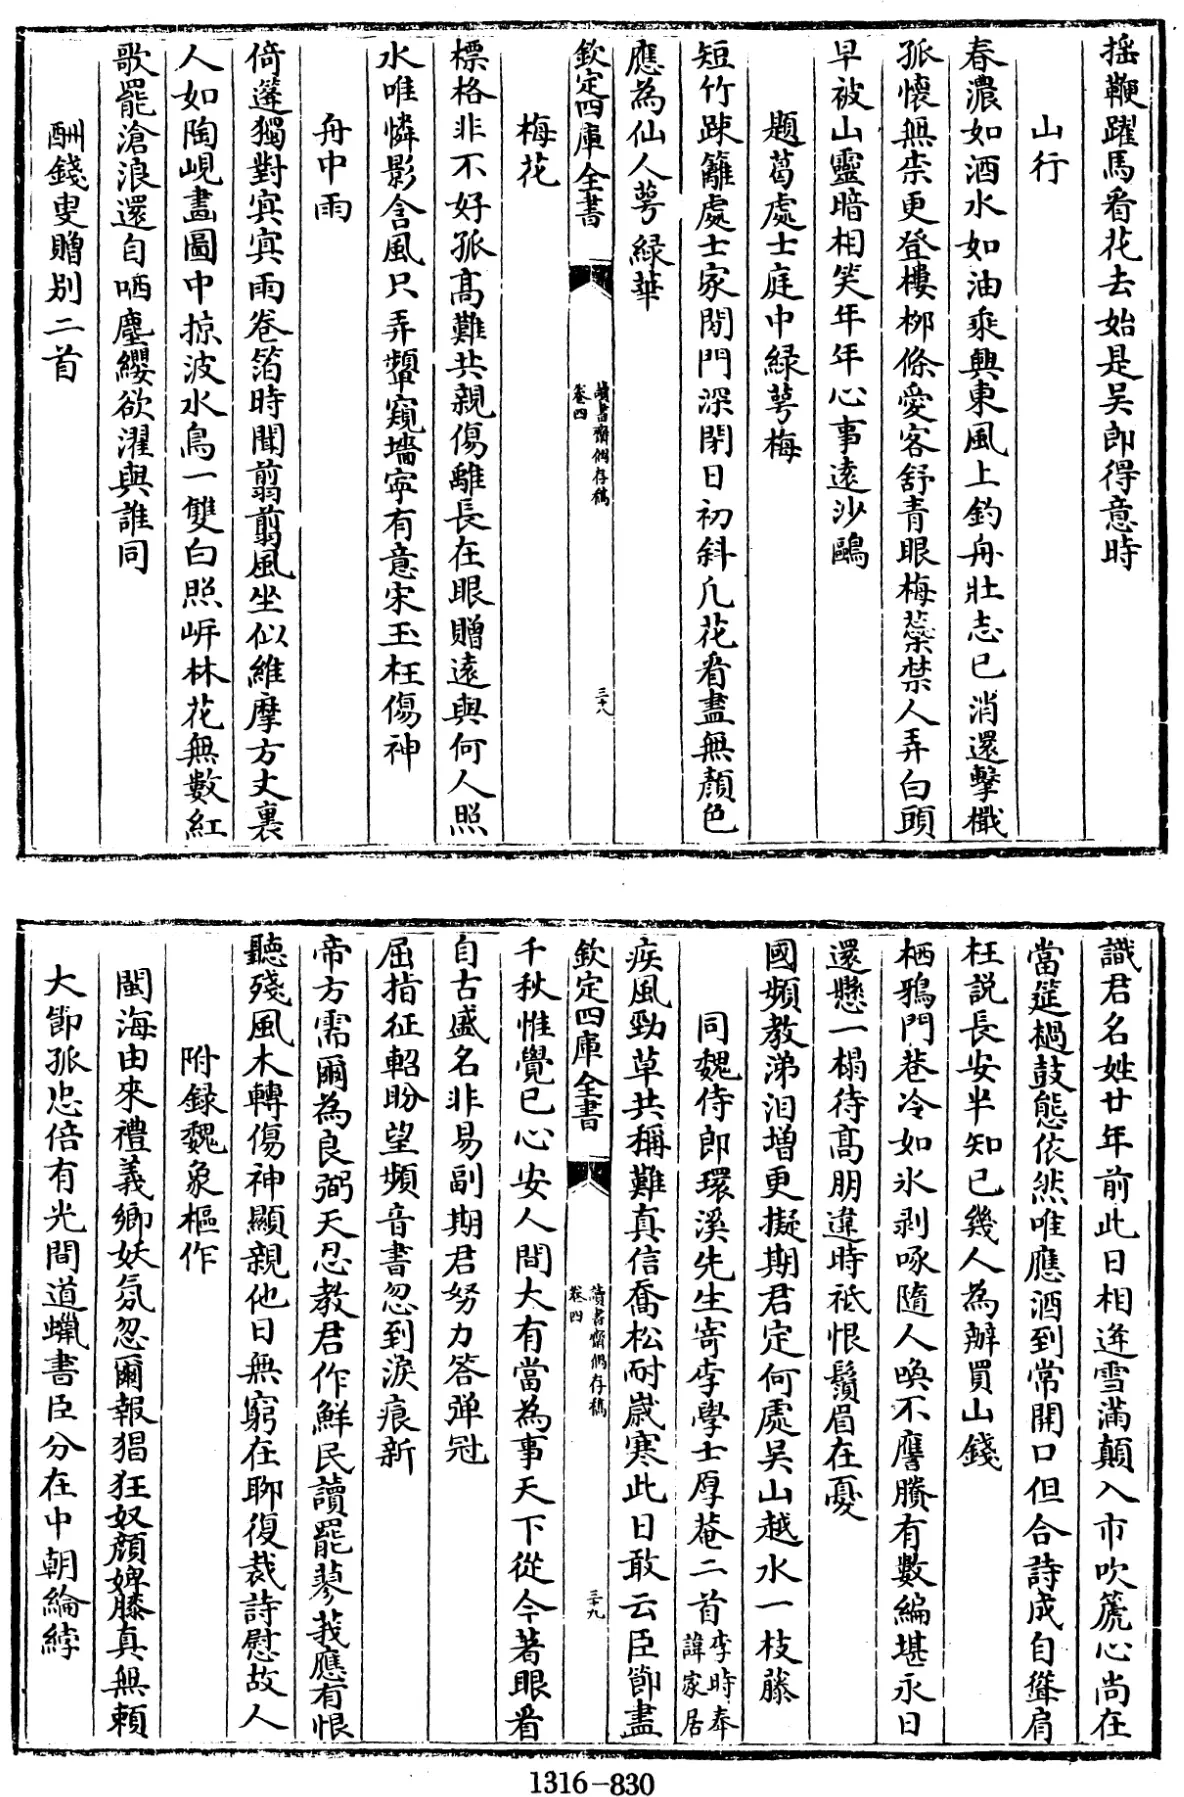 揺鞭躍馬看花去始是吴郎得意時
山行
春濃如酒水如油乘興東風上釣舟壯志已消還擊檝
孤懷無柰更登樓柳條愛客舒青眼梅蘂禁人弄白頭
早被山靈暗相笑年年心事逺沙鷗
題葛處士庭中緑萼梅
短竹踈籬處士家閉門深閉日初斜凡花看盡無顔色
應為仙人萼緑華
欽定四庫全書
讀書齋偶存稿
卷四
三十八
梅花
標格非不好孤髙難共親傷離長在眼贈逺與何人照
水唯憐影含風只弄顰窺墻寜有意宋玉枉傷神
舟中雨
倚篷獨對㝠㝠雨卷箔時聞翦翦風坐似維摩方丈裏
人如陶峴畫圖中掠波水鳥一雙白照㟁林花無數紅
歌罷滄浪還自哂塵纓欲濯與誰同
酬錢叟贈别二首
識君名姓廿年前此日相逄雪滿顛入市吹篪心尚在
當筵撾鼓態依然唯應酒到常開口但合詩成自聳肩
枉説長安半知已幾人為辦買山錢
栖鴉門巷冷如氷剥啄隨人喚不譍賸有數編堪永日
還懸一榻待髙朋違時祗恨鬚眉在憂
國頻教涕泪增更擬期君定何處吴山越水一枝藤
同魏侍郎環溪先生寄李學士厚菴二首李時奉諱家居
疾風勁草共稱難真信喬松耐嵗寒此日敢云臣節盡
欽定四庫全書
讀書齋偶存稿
卷四
三十九
千秋惟覺已心安人間大有當為事天下從今著眼看
自古盛名非易副期君努力答弹冠
屈指征軺盼望頻音書忽到淚痕新
帝方需爾為良弼天忍教君作鮮民讀罷蓼莪應有恨
聽殘風木轉傷神顯親他日無窮在聊復裁詩慰故人
附録魏象樞作
閩海由來禮義鄉妖氛忽爾報猖狂奴顔婢膝真無頼
大節孤忠倍有光間道蠟書臣分在中朝綸綍
1316-830